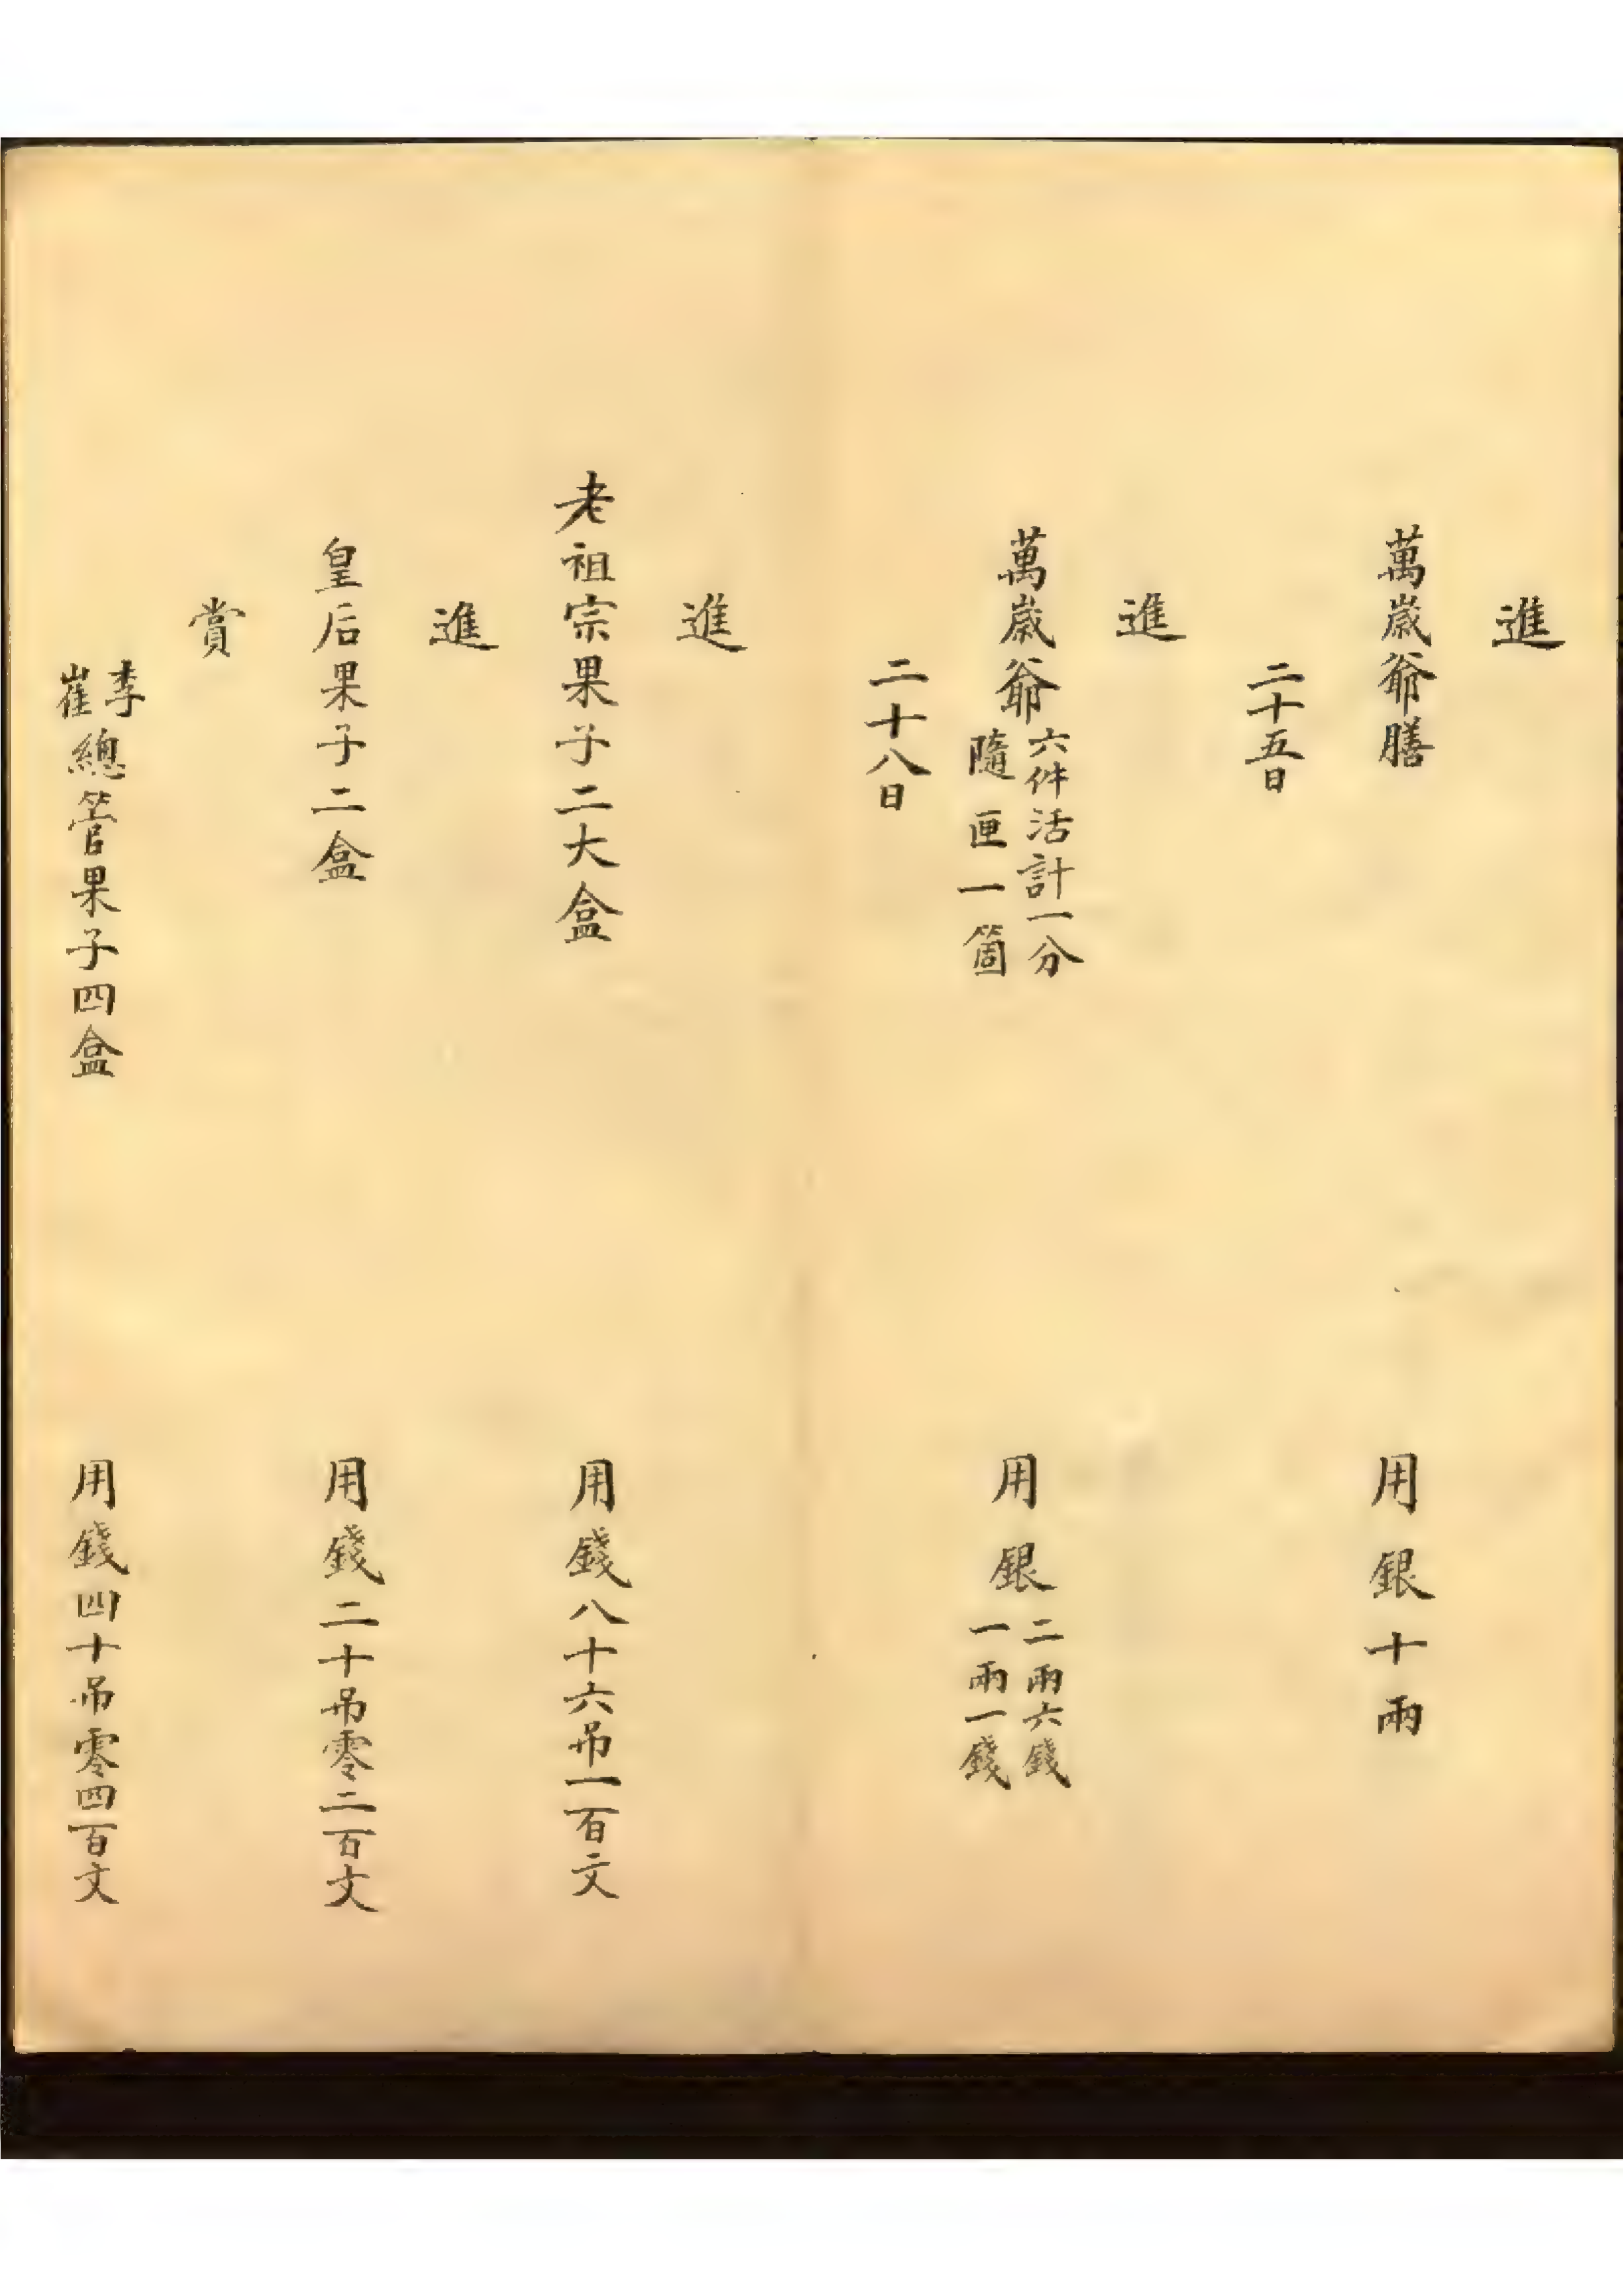 進
萬歲爺膳 用銀十兩
二十五日
進
萬歲爺六件活計一分隨匣一箇 用銀二兩六錢一兩一錢
二十八日
進
老祖宗果子二大盒 用錢八十六吊一百文
進
皇后果子二盒 用錢二十吊零二百文
賞
李崔總管果子四盒 用錢四十吊零四百文